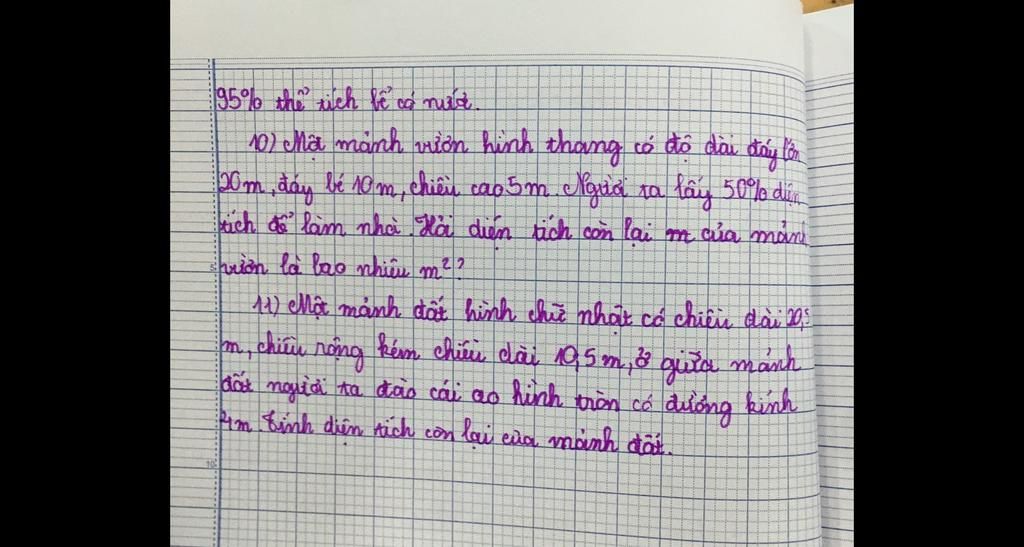 95% thể tích bể có nước.
10) Một mảnh vườn hình thang có độ dài đáy lớn
20m, đáy bé 10m, chiều cao 5m. Người ta lấy 50% diện
tích để làm nhà. Hỏi diện tích còn lại m của mảnh
vườn là bao nhiêu m²?
11) Một mảnh đất hình chữ nhật có chiều dài 20,5
m, chiều rộng kém chiều dài 10,5m, ở giữa mảnh
đất người ta đào cái ao hình tròn có đường kính
4m. Tính diện tích còn lại của mảnh đất.